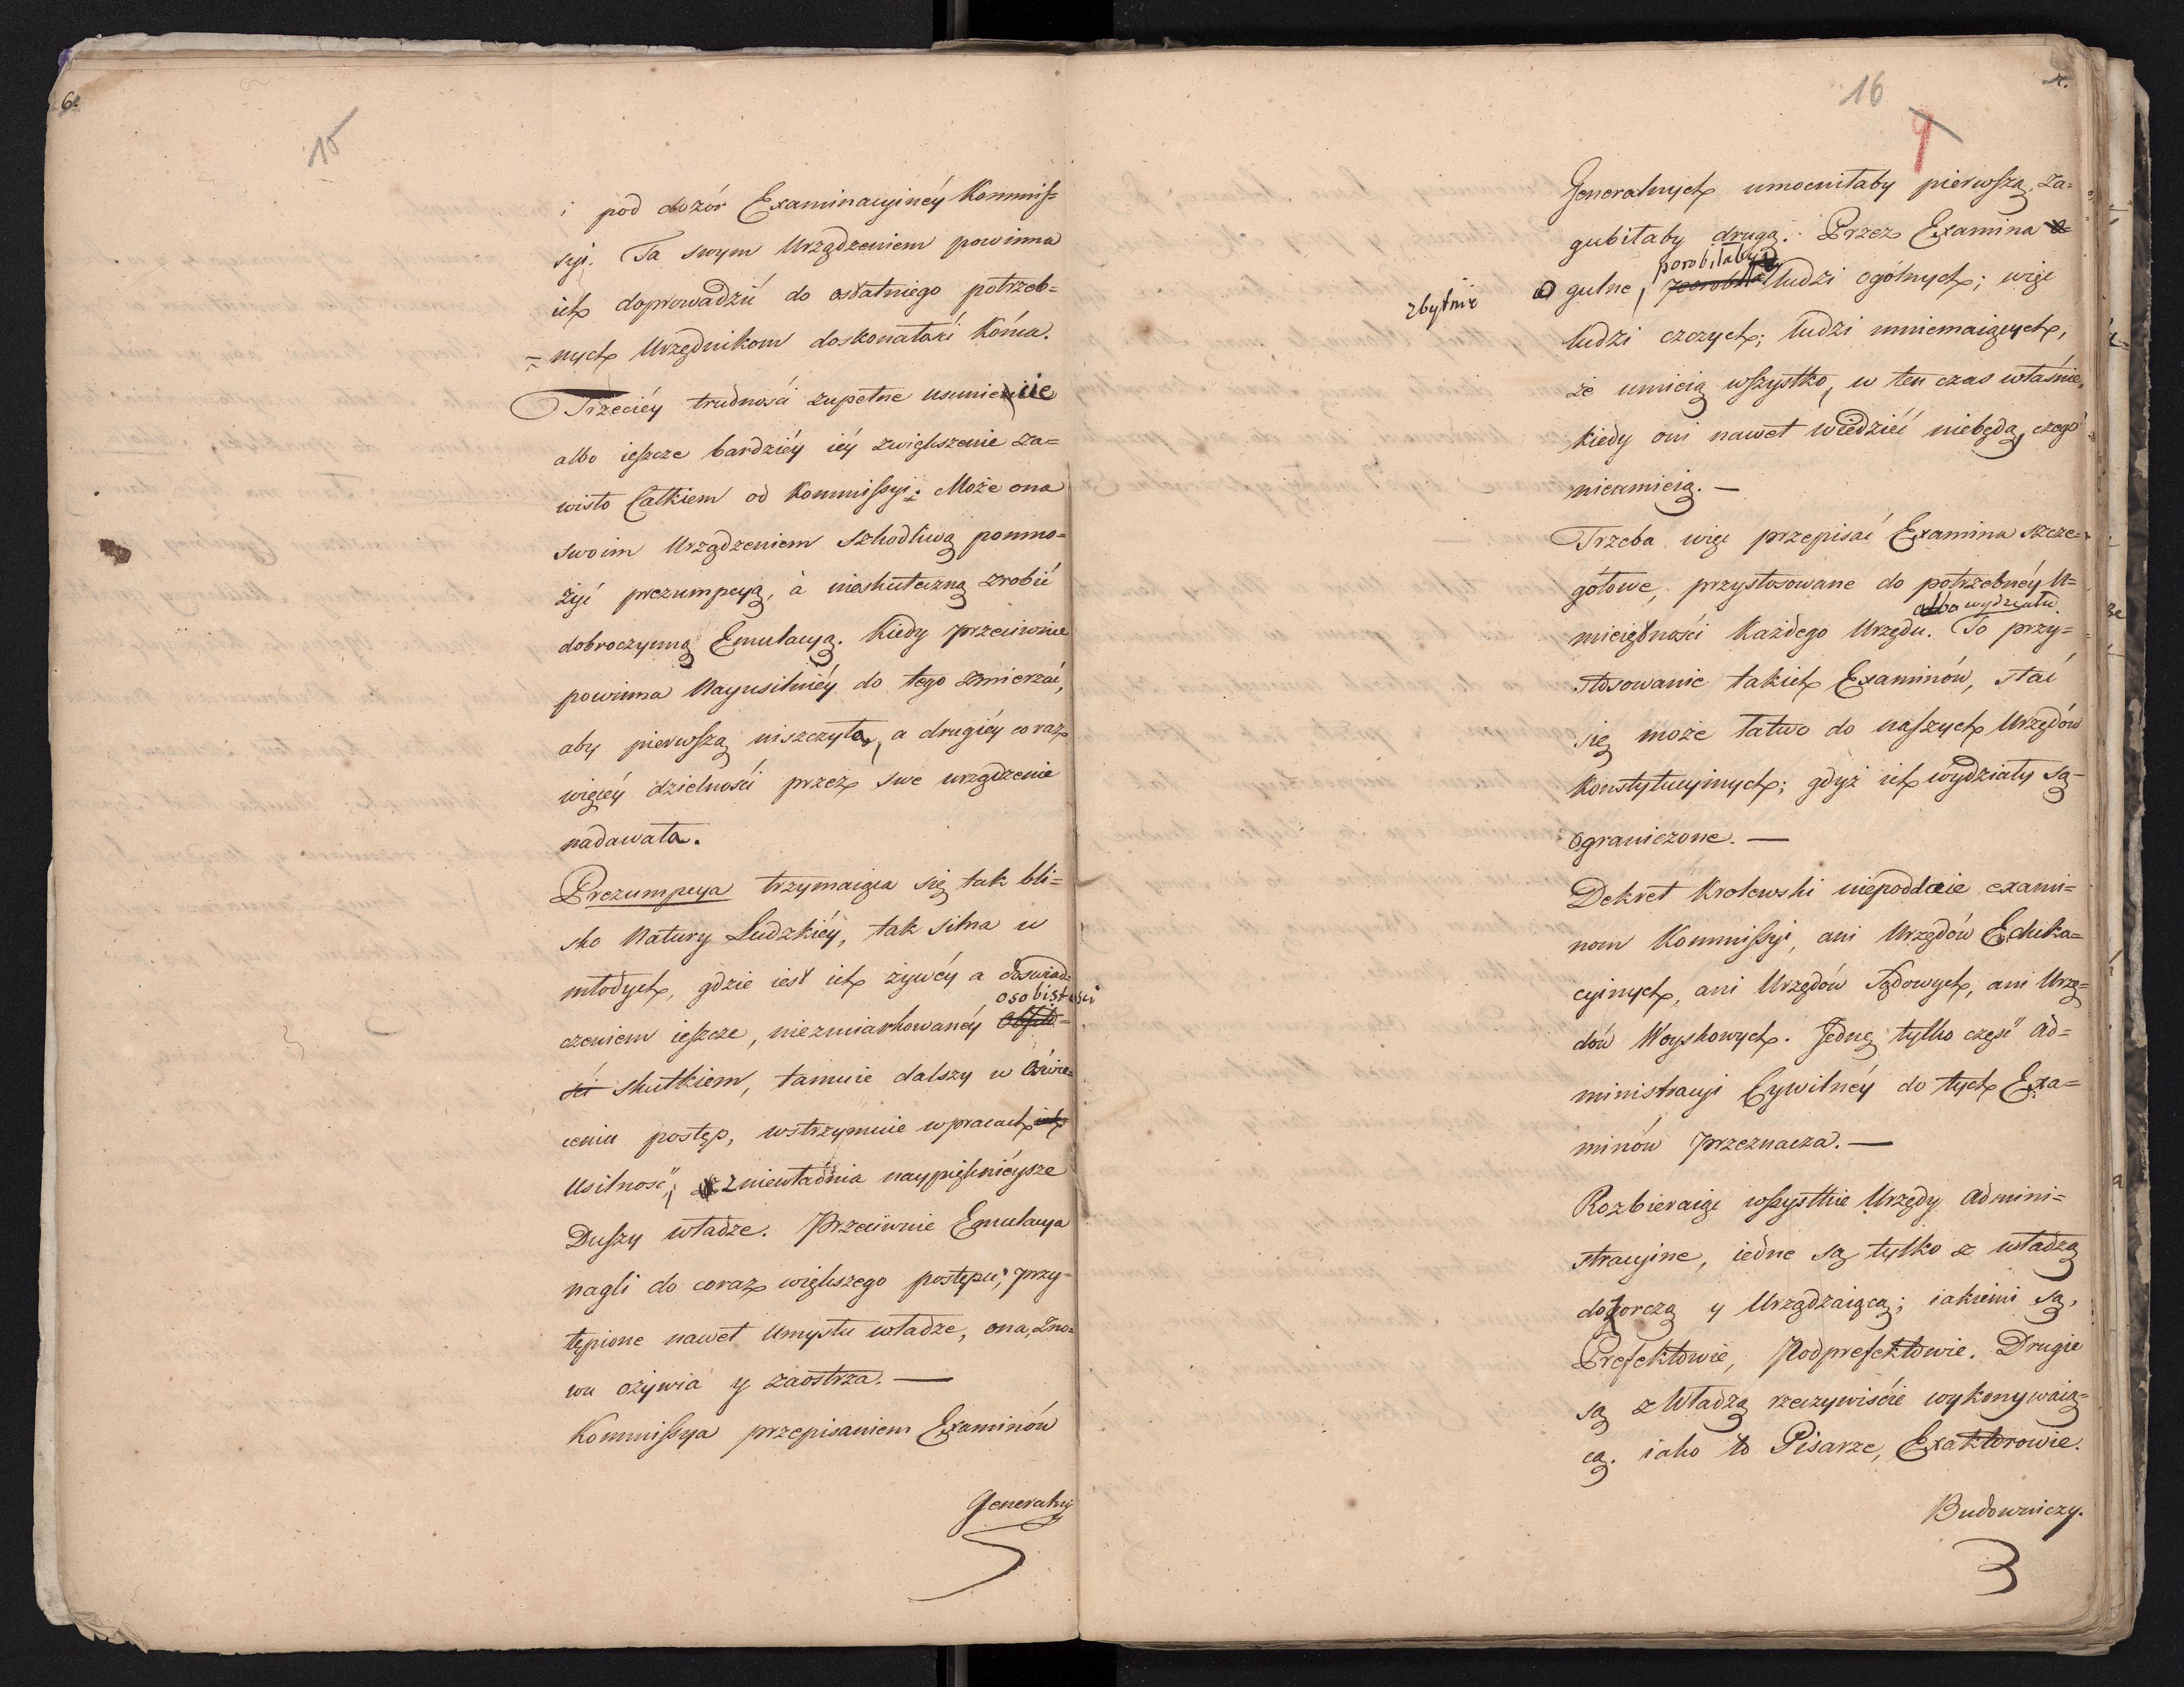 6.
15
i pod dozór Examinacyinéy Kommis=
syi. Ta swym Urządzeniem powinna
ich doprowadzić do ostatniego potrzeb=
=nych Urzędnikom doskonałości Końca.
Trzeciéy trudności zupełne usunienie
albo ieszcze bardziéy iéy zwiększenie za=
wisło Całkiem od Kommissyi: Może ona
swoim Urządzeniem szkodliwą pomno=
żyć prezumpcyą, à nieskuteczną zrobić
dobroczynną Emulacyą. Kiedy przeciwnie
powinna Nayusilniéy do tego zmierzać,
aby pierwszą niszczyła, a drugiéy coraz
więcéy dzielności przez swe urządzenie
nadawała.
Prezumpcya trzymaiąca się tak bli=
sko Natury Ludzkiéy, tak silna w
młodych, gdzie iest ich żywéy a doswiad=
osobistosci
czeniem ieszcze, niezmiarkowanéy
sci skutkiem, tamuie dalszy w Oświe=
ceniu postęp, wstrzymuie w pracach ich
Usilność; zniewładnia naypiękniéysze
Duszy władze. Przeciwnie Emulacya
nagli do coraz większego postępu; przy=
tępione nawet Umysłu władze, ona, Zno=
wu ożywia y zaostrza. —
Kommissya przepisaniem Examinów
Generalny
16
9
Generalnych umocniłaby pierwszą, za=
gubiłaby drugą. Przez Examina o=
porobiłaby
zbytnie
gulne, ludzi ogólnych; więc
ludzi czczych; ludzi mniemaiących,
że umieią wszystko, w ten czas właśnie,
kiedy oni nawet wiedzieć niebędą, czego
nieumieią. —
Trzeba więc przepisać Examina szcze=
gółowe, przystosowane do potrzebnéy U=
albo wydziału.
mieiętności Każdego Urzędu. To przy=
stosowanie takich Examinów, stać
się może łatwo do naszych Urzędów
Konstytucyinych; gdyż ich wydziały są
ograniczone. —
Dekret Krolewski niepoddaie exami=
nom Kommissyi, ani Urzędów Eduka=
cyinych, ani Urzędów Sądowych, ani Urzę=
dów Woyskowych. Jednę tylko część Ad=
ministracyi Cywilnéy do tych Exa=
minów przeznacza. —
Rozbieraiąc wszystkie Urzędy Admini=
stracyine, iedne są tylko z władzą
dozorczą y Urządzaiącą; iakiemi są,
Prefektowie, Podprefektowie. Drugie
są z Władzą rzeczywiście wykonywaią=
cą. iako to Pisarze, Exaktorowie.
Budowniczy.